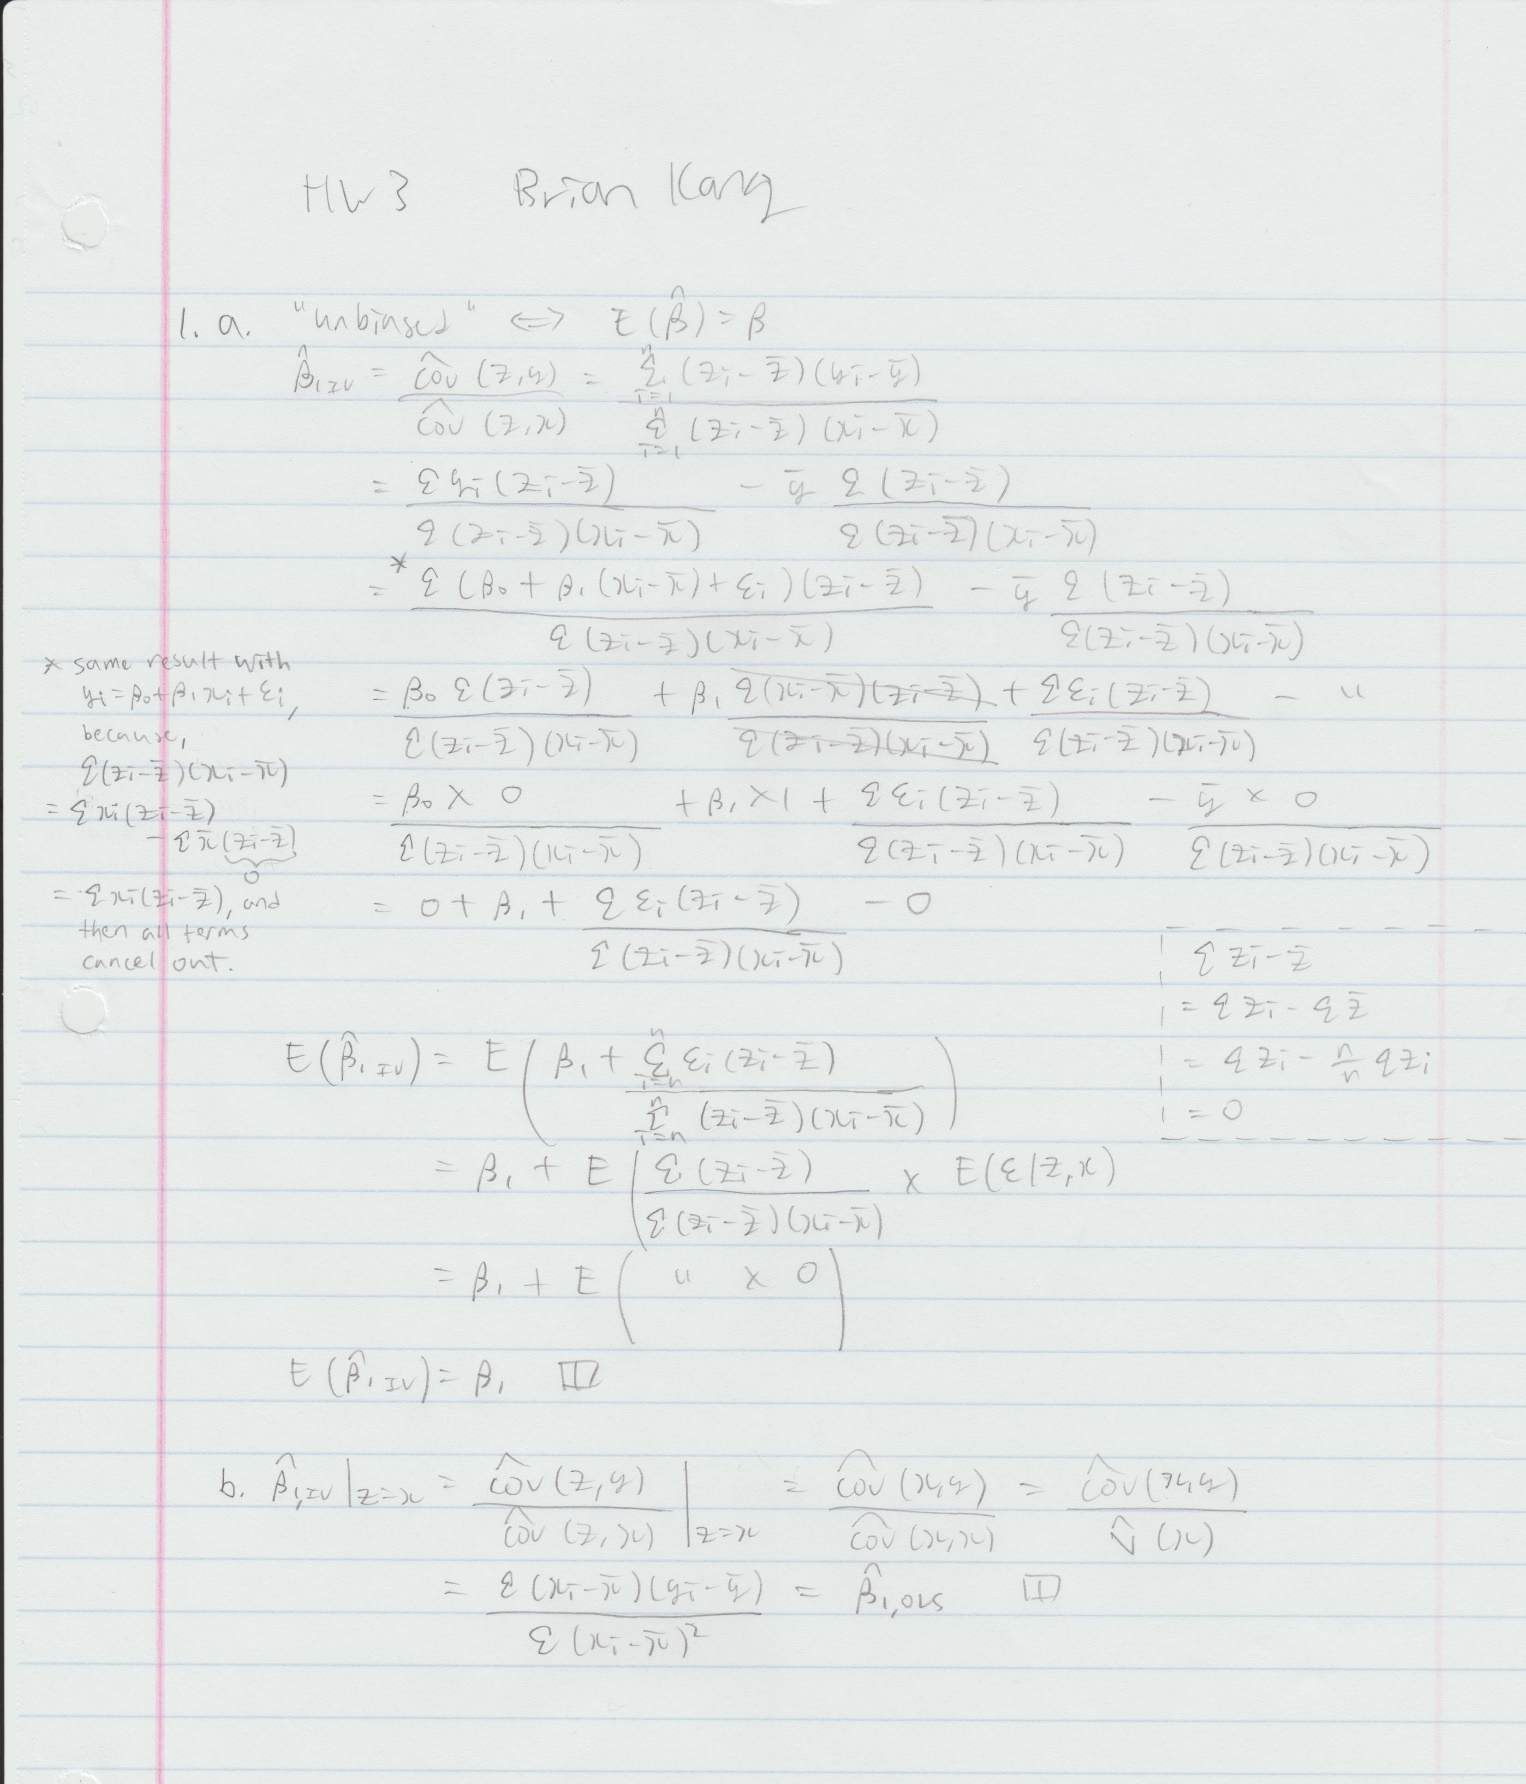 HW 3 Brian Kang
1. a. "unbiased" <=> E(β̂) = β
β̂₁ IV = côv(z,y) / côv(z,x) = Σⁿᵢ₌₁ (zᵢ - z̄)(yᵢ - ȳ) / Σⁿᵢ₌₁ (zᵢ - z̄)(xᵢ - x̄)
= Σ yᵢ(zᵢ - z̄) / Σ(zᵢ - z̄)(xᵢ - x̄) - ȳ Σ(zᵢ - z̄) / Σ(zᵢ - z̄)(xᵢ - x̄)
=* Σ(β₀ + β₁(xᵢ - x̄) + εᵢ)(zᵢ - z̄) / Σ(zᵢ - z̄)(xᵢ - x̄) - ȳ Σ(zᵢ - z̄) / Σ(zᵢ - z̄)(xᵢ - x̄)
= β₀ Σ(zᵢ - z̄) / Σ(zᵢ - z̄)(xᵢ - x̄) + β₁ Σ(xᵢ - x̄)(zᵢ - z̄) / Σ(zᵢ - z̄)(xᵢ - x̄) + Σεᵢ(zᵢ - z̄) / Σ(zᵢ - z̄)(xᵢ - x̄) - "
= β₀ × 0 / Σ(zᵢ - z̄)(xᵢ - x̄) + β₁ × 1 + Σεᵢ(zᵢ - z̄) / Σ(zᵢ - z̄)(xᵢ - x̄) - ȳ × 0 / Σ(zᵢ - z̄)(xᵢ - x̄)
= 0 + β₁ + Σεᵢ(zᵢ - z̄) / Σ(zᵢ - z̄)(xᵢ - x̄) - 0
* same result with
yᵢ = β₀ + β₁xᵢ + εᵢ,
because,
Σ(zᵢ - z̄)(xᵢ - x̄)
= Σxᵢ(zᵢ - z̄)
- Σx̄(zᵢ - z̄)
0
= Σxᵢ(zᵢ - z̄), and
then all terms
cancel out.
Σ zᵢ - z̄
= Σzᵢ - Σz̄
= Σzᵢ - n/n Σzᵢ
= 0
E(β̂₁ IV) = E(β₁ + Σⁿᵢ₌ₙ εᵢ(zᵢ - z̄) / Σⁿᵢ₌ₙ (zᵢ - z̄)(xᵢ - x̄))
= β₁ + E(Σ(zᵢ - z̄) / Σ(zᵢ - z̄)(xᵢ - x̄) × E(ε|z,x)
= β₁ + E( " × 0)
E(β̂₁ IV) = β₁ □
b. β̂₁,IV |z=x = côv(z,y) / côv(z,x) |z=x = côv(x,y) / côv(x,x) = côv(x,y) / V̂(x)
= Σ(xᵢ - x̄)(yᵢ - ȳ) / Σ(xᵢ - x̄)² = β̂₁,OLS □